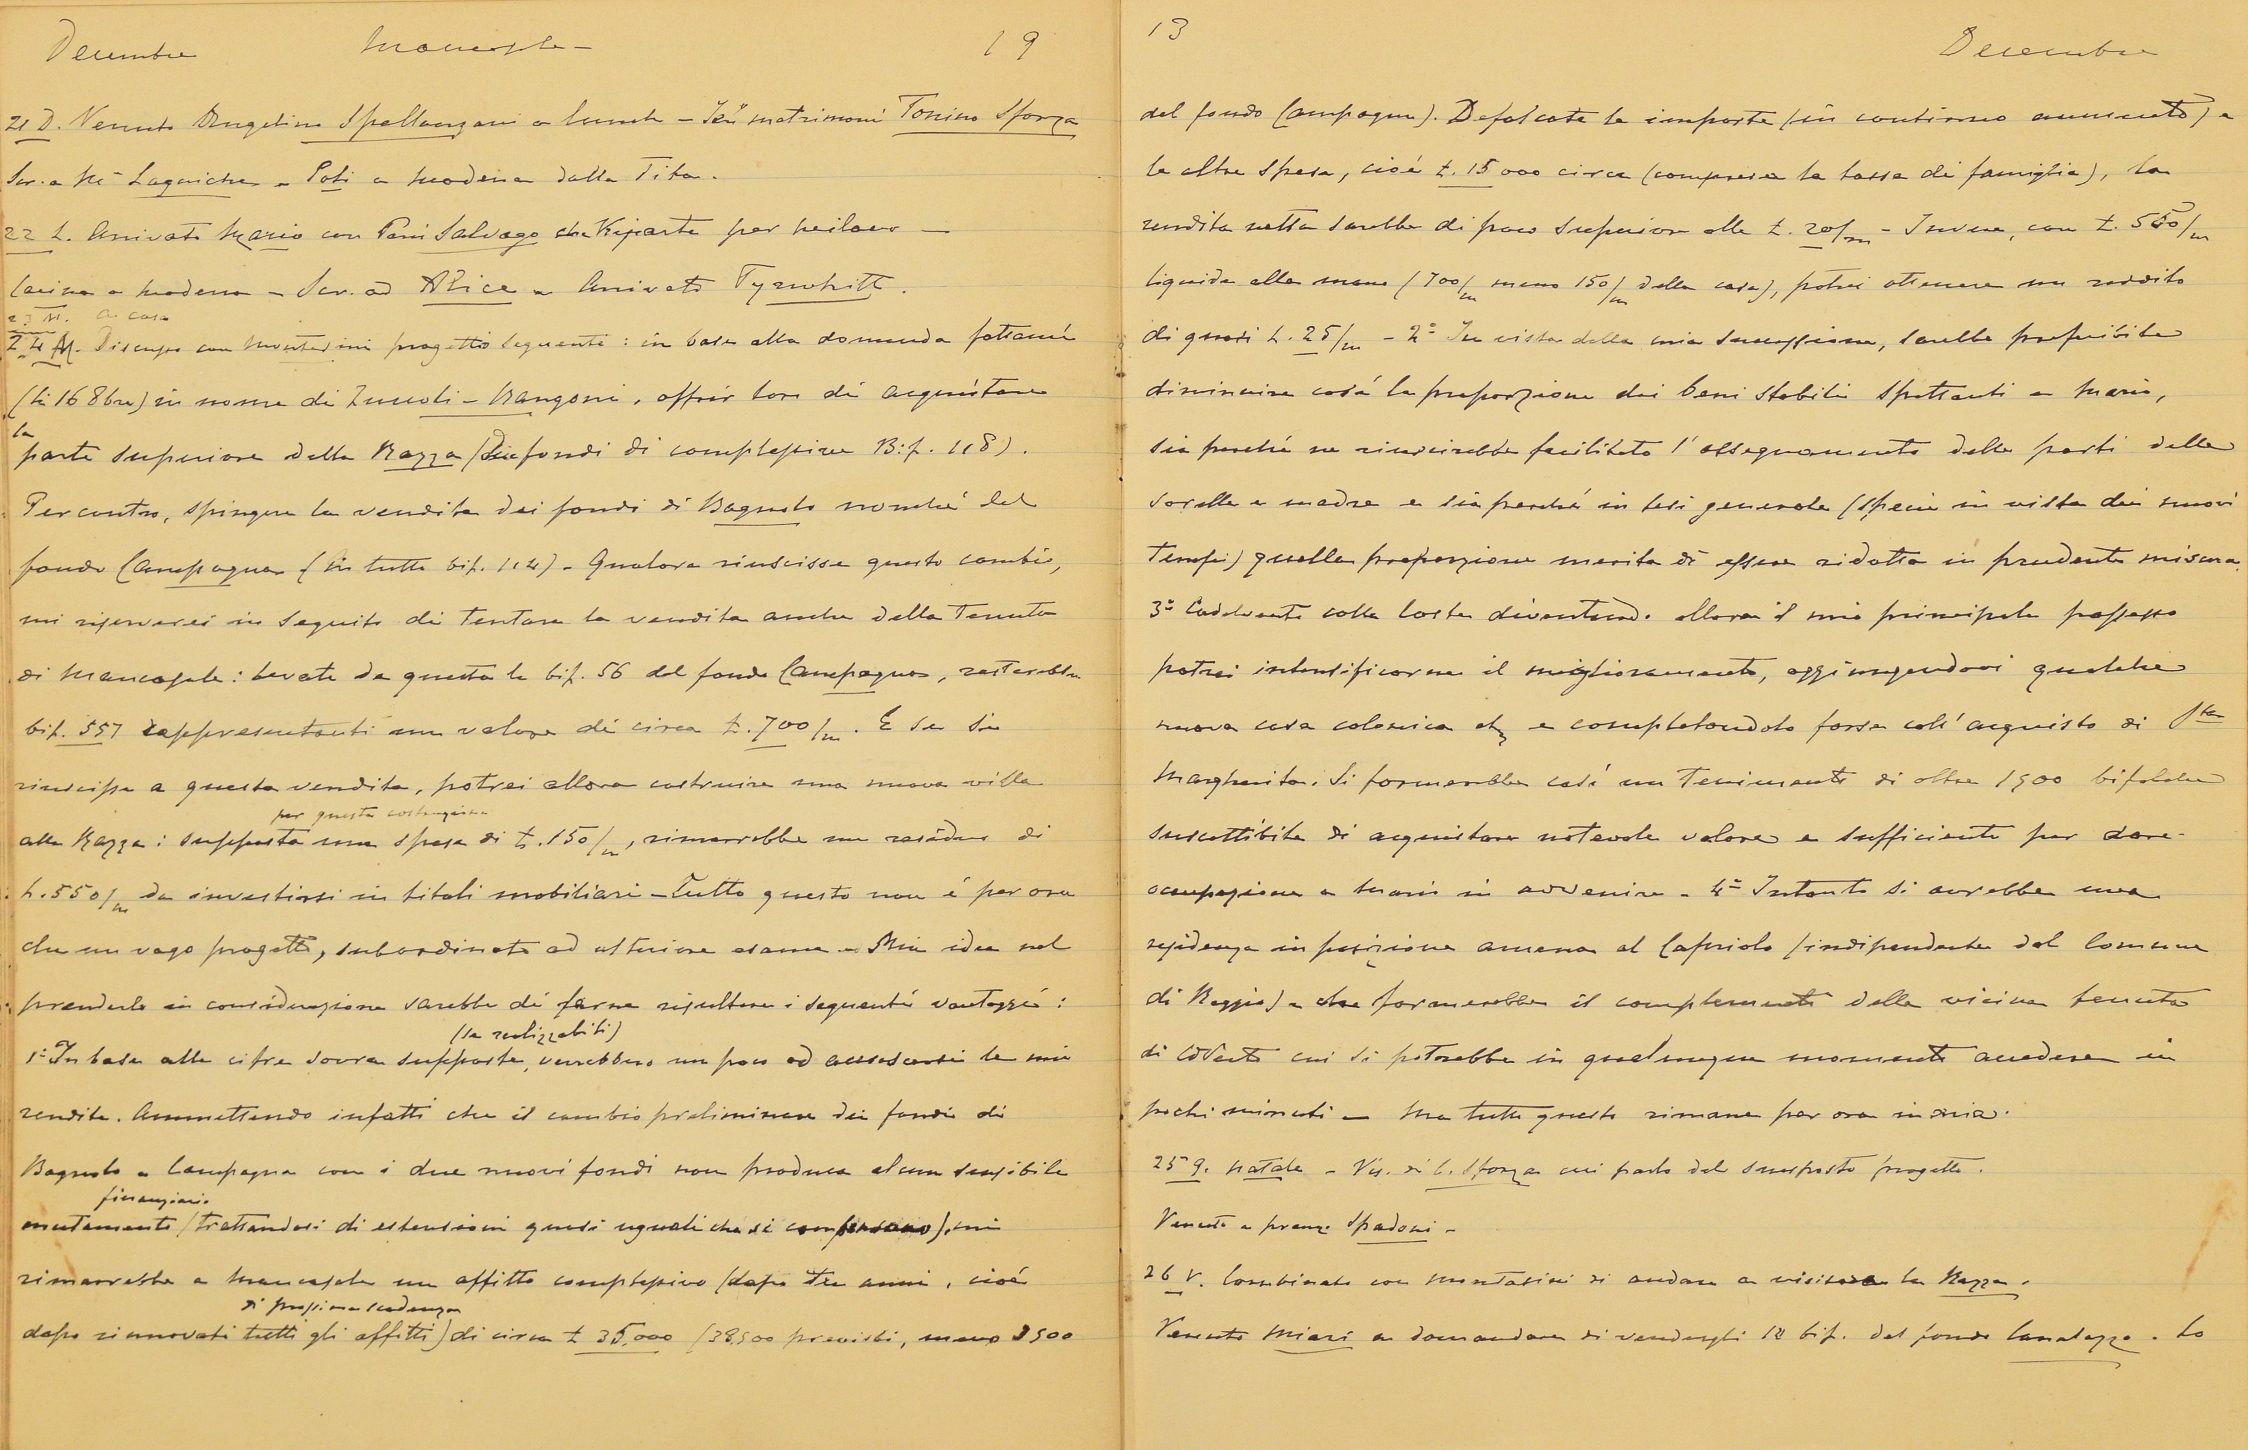 Decembre Mancasale — 19
21 D. Venuto Angelino Spallanzani a lunch — Ieri matrimonio Tonino Sforza
Scr. a Me Laguiche — Poti a Modena dalla Tita.
22 L. Arrivato Mario con Pani Salvago che riparte per Milano —
Carina a Modena — Scr. ad Alice — Arrivato Tyrwhitt.
23 M. a casa
24 M. Discusso con Montasini progetto seguente: in base alla domanda fattami
(li 16 8bre) in nome di Zuccoli-Rangoni, offrir loro di acquistare
la
parte superiore della Razza (Due fondi di complessive Bif. 118).
Per contro, spingere la vendita dei fondi di Bagnolo nonché del
fondo Campagna (in tutto bif. 114) — Qualora riuscisse questo cambio,
mi riserverei in seguito di tentare la vendita anche della Tenuta
di Mancasale: levate da questa le bif. 56 del fondo Campagna, resterebbero
bif. 557 rappresentanti un valore di circa £. 700/m. E se si
riuscisse a questa vendita, potrei allora costruire una nuova villa
per questa costruzione
alla Razza: supposta una spesa di £. 150/m, rimarrebbe un residuo di
L. 550/m da investirsi in titoli mobiliari — Tutto questo non è per ora
che un vago progetto, subordinato ad ulteriore esame — Mia idea nel
prenderlo in considerazione sarebbe di farne risultare i seguenti vantaggi:
(se realizzabili)
1° In base alle cifre sovra supposte, verrebbero un poco ad accrescersi le mie
rendite. Ammettendo infatti che il cambio preliminare dei fondi di
Bagnolo e Campagna con i due nuovi fondi non produca alcun sensibile
finanziario
mutamento (trattandosi di estensioni quasi uguali che si compensano), mi
rimarrebbe a Mancasale un affitto complessivo (dopo tre anni, cioè
di prossima scadenza
dopo rinnovati tutti gli affitti) di circa £ 35.000 (38500 previsti, meno 3500
13 Decembre
del fondo Campagna). Defalcate le imposte (in continuo aumento) e
le altre spese, cioè £. 15.000 circa (compresa la tassa di famiglia), la
rendita netta sarebbe di poco superiore alle £. 20/m — Invece, con £. 550/m
liquide alla mano (700/m meno 150/m della casa), potrei ottenere un reddito
di quasi L. 25/m — 2° In vista della mia successione, sarebbe preferibile
diminuire così la proporzione dei beni stabili spettanti a Mario,
sia perché ne riuscirebbe facilitato l'assegnamento delle parti delle
sorelle e madre e sia perché in tesi generale (specie in vista dei nuovi
tempi) quella proporzione merita di essere ridotta in prudente misura.
3° Cadelvento colla Costa diventando allora il mio principale possesso
potrei intensificarne il miglioramento, aggiungendovi qualche
nuova casa colonica etc e completandolo forse coll'acquisto di Sta
Margherita. Si formerebbe così un tenimento di oltre 1500 bifolche
suscettibile di acquistare notevole valore e sufficiente per dare
occupazione a Mario in avvenire — 4° Intanto si avrebbe una
residenza in posizione amena al Capriolo (indipendente dal Comune
di Reggio) e che formerebbe il complemento della vicina tenuta
di CdVento cui si potrebbe in qualunque momento accedere in
pochi minuti — Ma tutto questo rimane per ora in aria.
25 G. Natale — Vis. di C. Sforza cui parlo del suesposto progetto.
Venuto a pranzo Spadoni —
26 V. Combinato con Montasini di andare a visitare la Razza.
Venuto Miari a domandare di vendergli 12 bif. del fondo Canalazzo. Lo